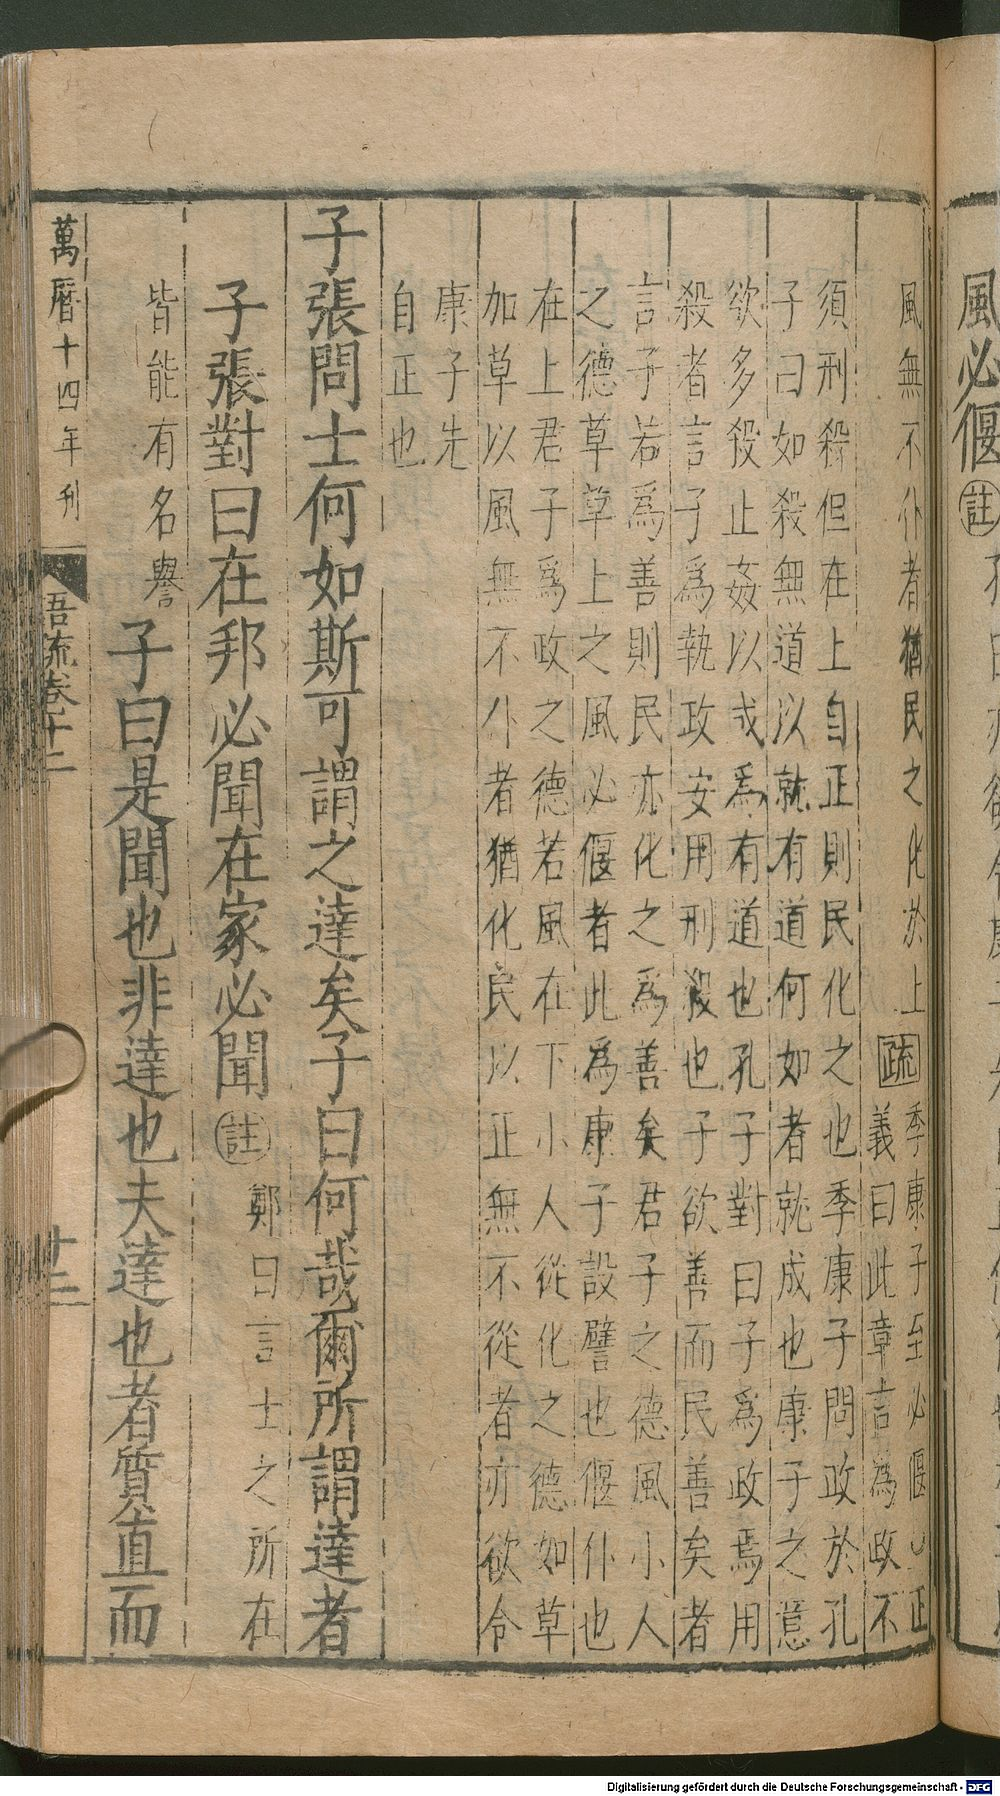 風必偃㊟
風無不仆者猶民之化於上疏季康子至必偃○正
義曰此章言為政不
須刑殺但在上自正則民化之也季康子問政於孔
子曰如殺無道以就有道何如者就成也康子之意
欲多殺止姦以成為有道也孔子對曰子為政焉用
殺者言子為執政安用刑殺也子欲善而民善矣者
言子若為善則民亦化之為善矣君子之德風小人
之德草草上之風必偃者此為康子設譬也偃仆也
在上君子為政之德若風在下小人從化之德如草
加草以風無不仆者猶化民以正無不從者亦欲令
康子先
自正也
子張問士何如斯可謂之達矣子曰何哉爾所謂達者
子張對曰在邦必聞在家必聞註鄭曰言士之所在
皆能有名譽子曰是聞也非達也夫達也者質直而
萬曆十四年刊
吾疏卷十二
十二
Digitalisierung gefördert durch die Deutsche Forschungsgemeinschaft - DFG